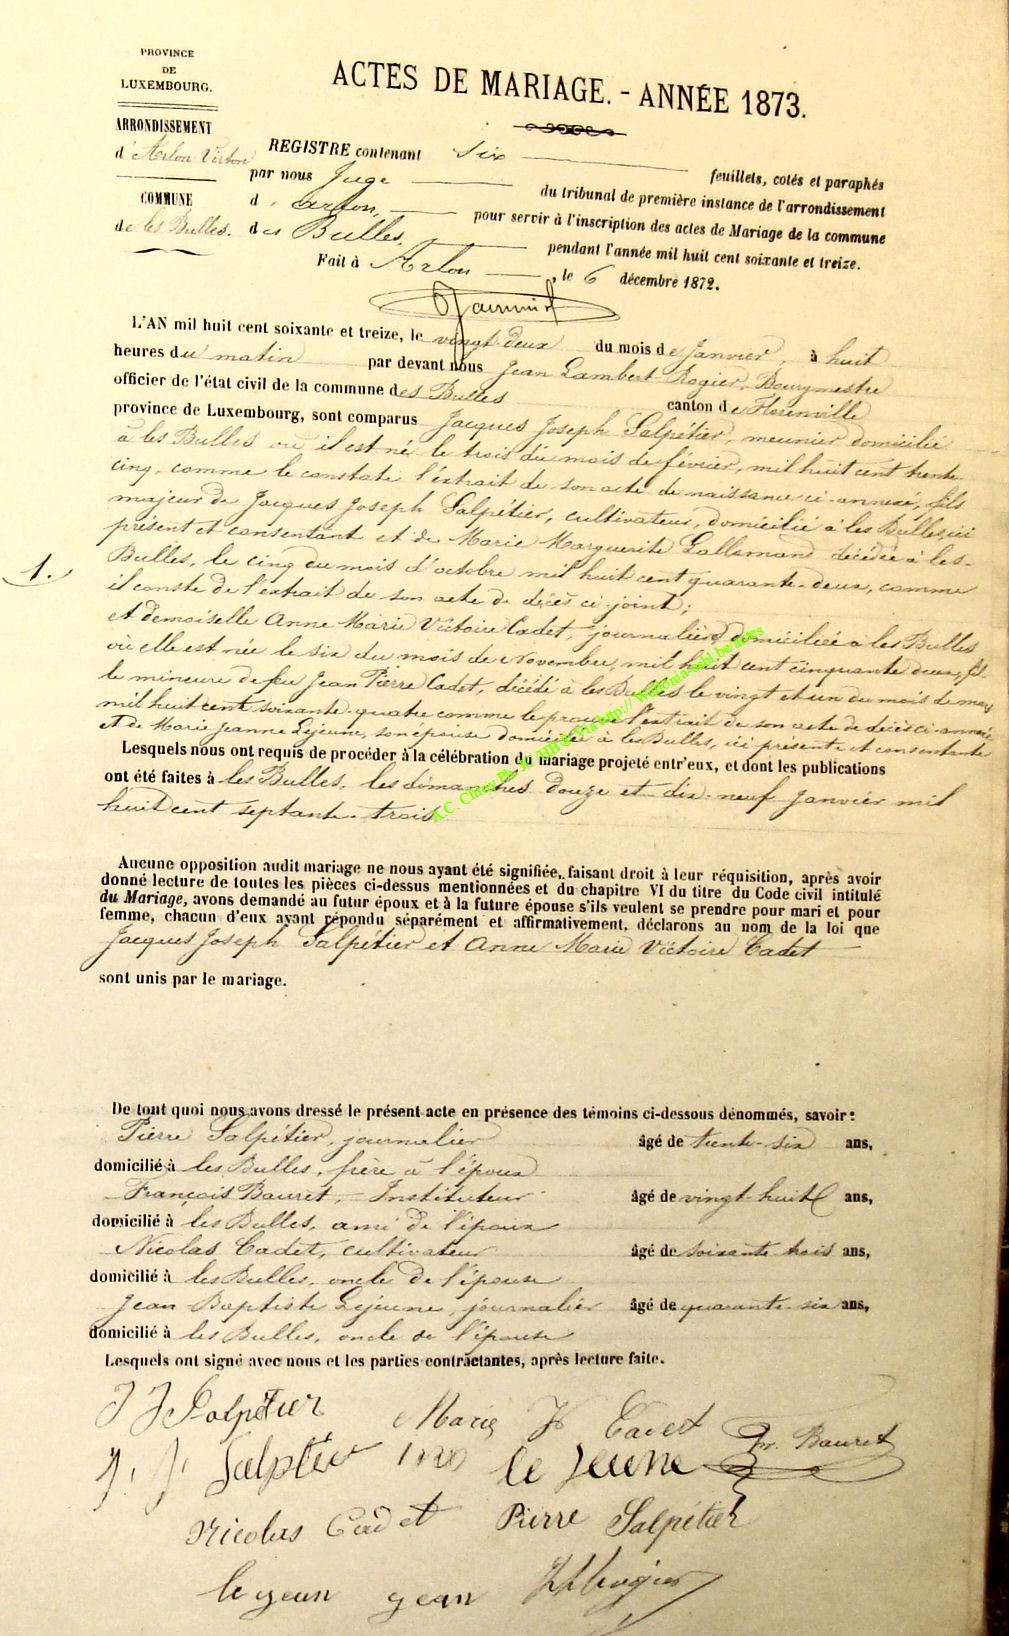 PROVINCE
DE
LUXEMBOURG.
ACTES DE MARIAGE. - ANNÉE 1873.
ARRONDISSEMENT
d'Arlon-Virton
COMMUNE
de les Bulles.
REGISTRE contenant six feuillets, cotés et paraphés
par nous Juge du tribunal de première instance de l'arrondissement
d'arlon, pour servir à l'inscription des actes de Mariage de la commune
des Bulles, pendant l'année mil huit cent soixante et treize.
Fait à Arlon, le 6 décembre 1872.
L'AN mil huit cent soixante et treize, le vingt deux du mois de Janvier, à huit
heures du matin par devant nous Jean Lambert Rogier, Bourgmestre
officier de l'état civil de la commune des Bulles canton de Florenville
province de Luxembourg, sont comparus Jacques Joseph Salpétier, meunier domicilié
à les Bulles où il est né le trois du mois de février, mil huit cent trente
cinq, comme le constate l'extrait de son acte de naissance ci-annexé, fils
majeur de Jacques Joseph Salpétier, cultivateur, domicilié à les Bulles, ici
présent et consentant et de Marie Marguerite Lallemand décédée à les-
1.
Bulles, le cinq du mois d'octobre mil huit cent quarante-deux, comme
il conste de l'extrait de son acte de décès ci-joint;
et demoiselle Anne Marie Victoire Cadet, journalière, domiciliée à les Bulles
où elle est née le six du mois de Novembre, mil huit cent cinquante deux, fil-
le mineure de feu Jean Pierre Cadet, décédé à les Bulles le vingt et un du mois de mai
mil huit cent soixante-quatre comme le prouve l'extrait de son acte de décès ci-annexé
et de Marie Jeanne Lejeune, son épouse domiciliée à les Bulles, ici présente et consentante
Lesquels nous ont requis de procéder à la célébration du mariage projeté entr'eux, et dont les publications
ont été faites à les Bulles, les dimanches douze et dix-neuf Janvier mil
huit cent septante-trois
Aucune opposition audit mariage ne nous ayant été signifiée, faisant droit à leur réquisition, après avoir
donné lecture de toutes les pièces ci-dessus mentionnées et du chapitre VI du titre du Code civil intitulé
du Mariage, avons demandé au futur époux et à la future épouse s'ils veulent se prendre pour mari et pour
femme, chacun d'eux ayant répondu séparément et affirmativement, déclarons au nom de la loi que
Jacques Joseph Salpétier et Anne Marie Victoire Cadet
sont unis par le mariage.
De tout quoi nous avons dressé le présent acte en présence des témoins ci-dessous dénommés, savoir:
Pierre Salpétier, journalier âgé de trente-six ans,
domicilié à les Bulles, frère à l'époux
François Bauret, Instituteur âgé de vingt huit ans,
domicilié à les Bulles, ami de l'époux
Nicolas Cadet, cultivateur âgé de soixante-trois ans,
domicilié à les Bulles, oncle de l'épouse
Jean Baptiste Lejeune, journalier âgé de quarante-six ans,
domicilié à les Bulles, oncle de l'épouse
Lesquels ont signé avec nous et les parties contractantes, après lecture faite.
J J Salpétier Marie V Cadet
J. J. Salpétier le jeune Fr. Bauret
Nicolas Cadet Pierre Salpétier
lejeun jean JLRogier